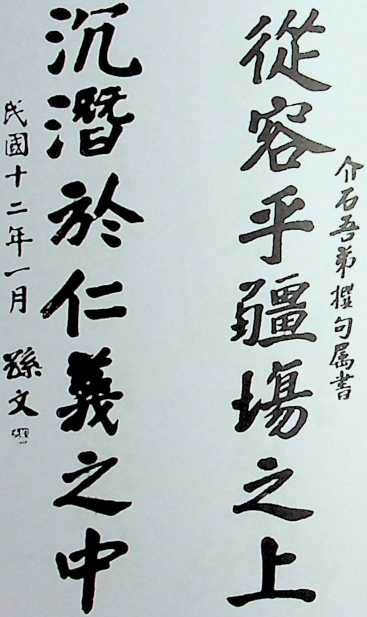 介石吾弟撰句屬書
從容乎疆場之上
沉潛於仁義之中
民國十二年一月 孫文